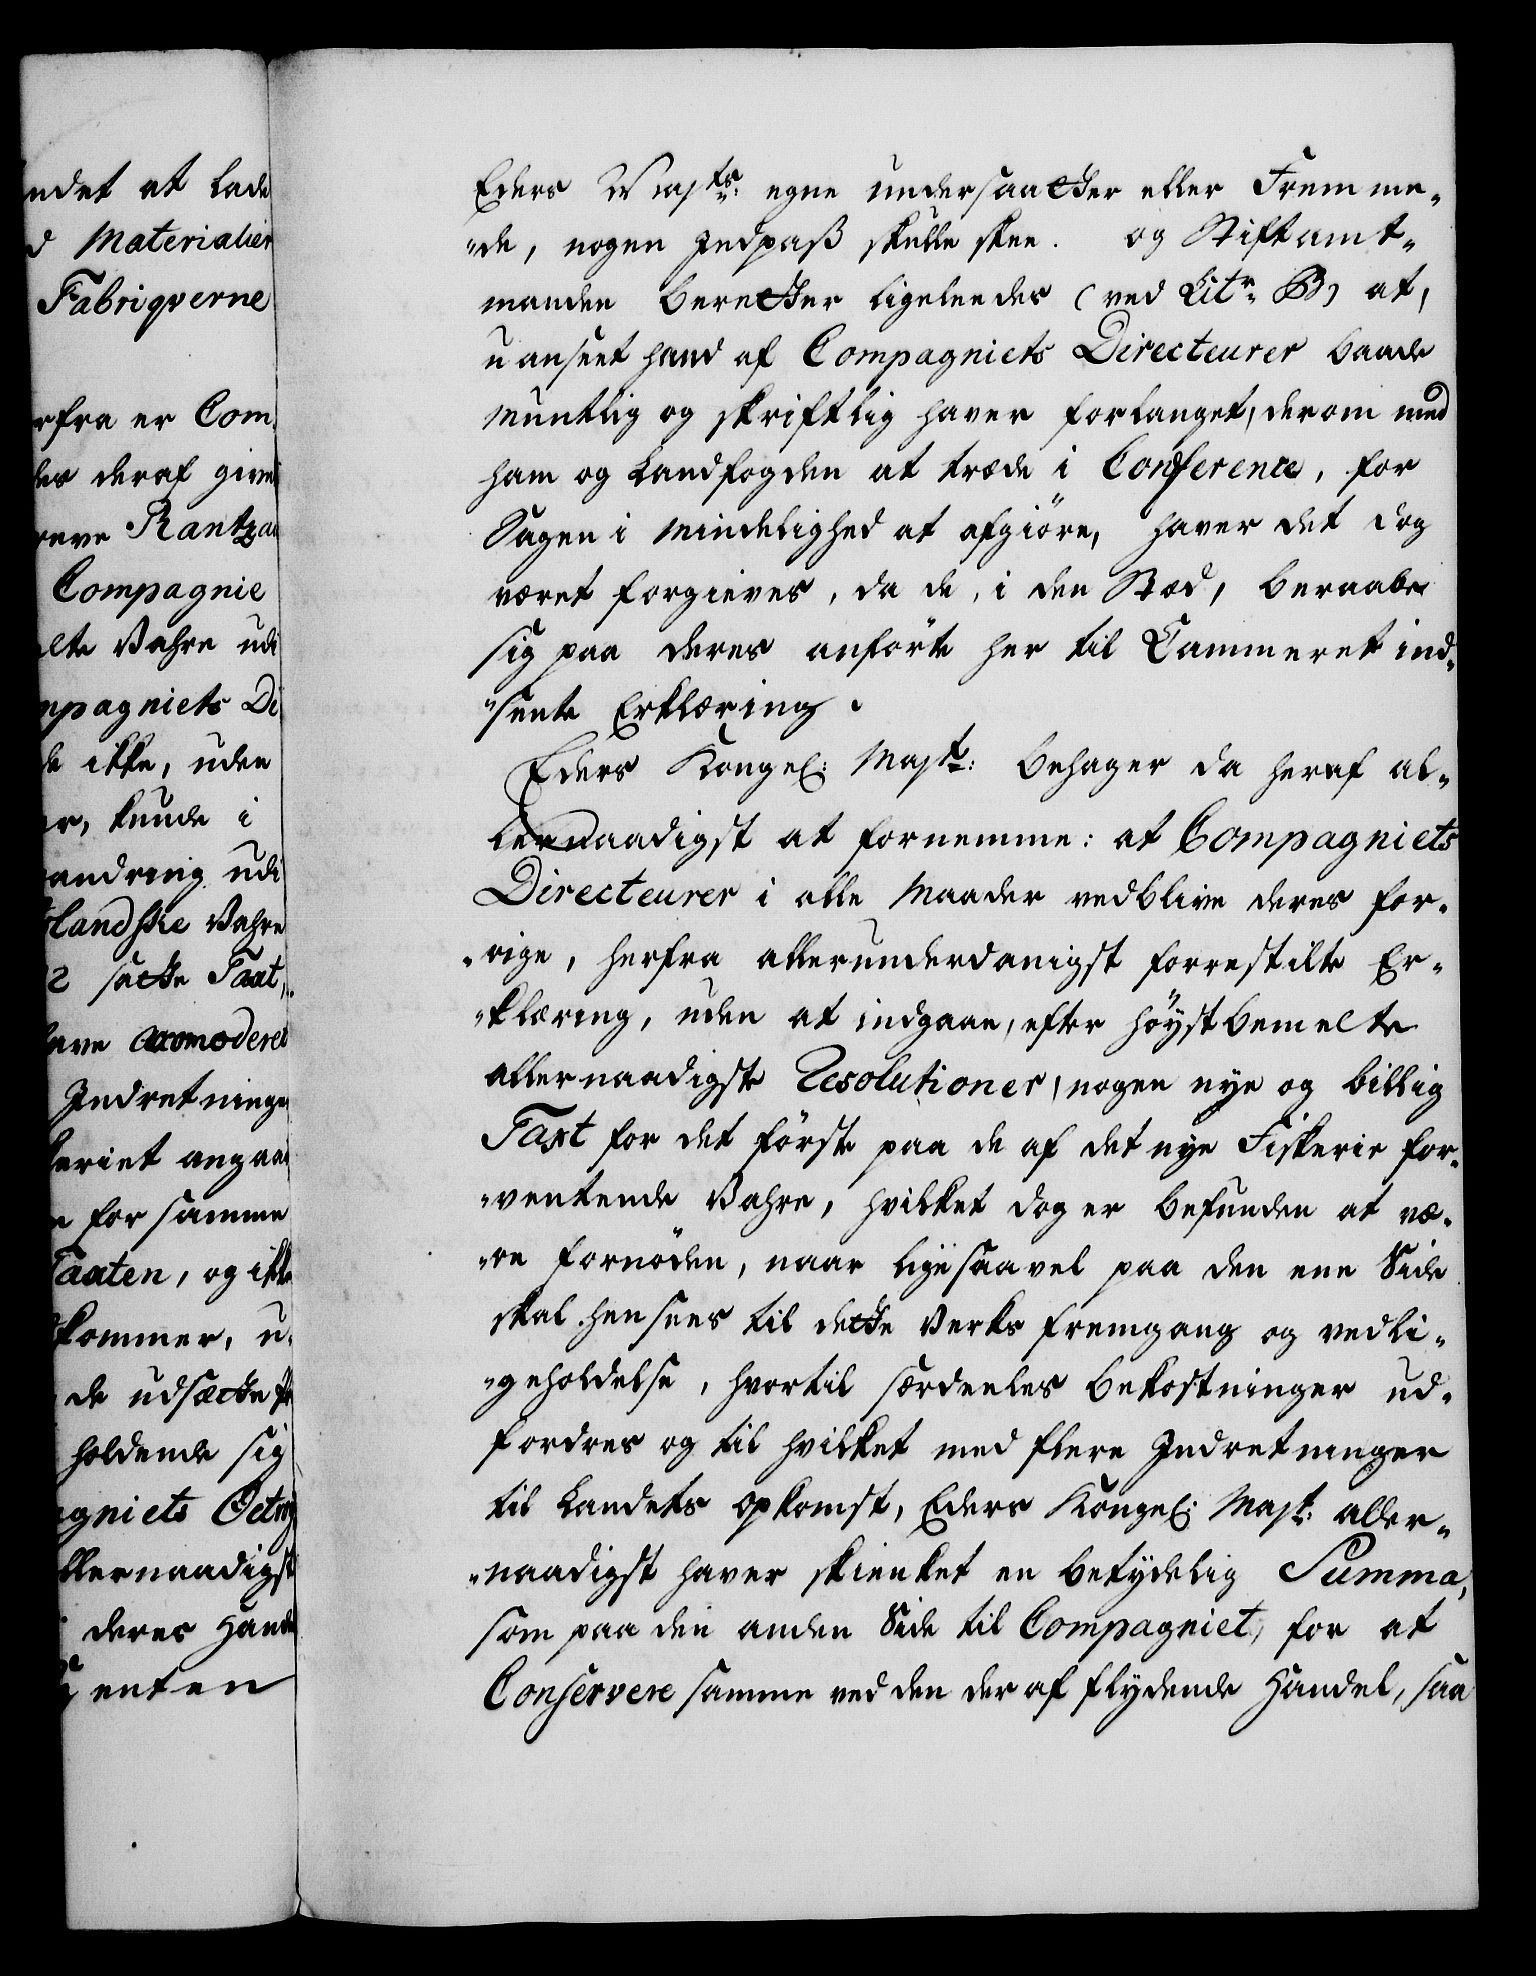 ndet at lade
d Materialier
Fabriqverne
rfra er Com
les deraf given
reve Rantzau
Compagnie
elte Vahre udi
mpagniets Di
de ikke, uden
er, kunde i
andring udi
slandske Vahre
2 satte Taxt,
have accmoderet
Indretninge
keriet angaae
n for samme
Taxten, og ikke
kommer, u„
de udsætte for
holdende sig
agniets Octroj
llernaadigst
i deres Hande
enten
Eders Majts: egne undersaatter eller Fremme„
„de, nogen Indpaß skulle skee. og Stiftamt„
manden beretter ligeleedes (ved Litr. B) at,
uanseet hand af Compagniets Directeurer baade
mundtlig og skriftlig haver forlanget, derom med
ham og Landfogden at træde i Conference, for
Sagen i Mindelighed at afgiöre, haver det dog
været forgieves, da de, i den Stæd, beraabe
sig paa deres anförte her til Cammeret ind„
„sente Erklæring.
Eders Kongel: Majt: behager da heraf al„
lernaadigst at fornemme: at Compagniets
Directeurer i alle Maader vedblive deres for„
„rige, herfra allerunderdanigst forrestilte Er„
„klæring, uden at indgaae, efter höystbemelte
allernaadigste Resolutioner, nogen nye og billig
Taxt for det förste paa de af det nye Fiskerie for„
„ventende Vahre, hvilket dog er befunden at væ„
„re fornöden, naar ligesaavel paa den ene Side
skal hensees til dette Verks fremgang og vedli„
„geholdelse, hvortil særdeeles bekostninger ud„
fordres og til hvilket med flere Indretninger
til Landets opkomst, Eders Kongel: Majt: aller„
„naadigst haver skienket en betydelig Summa,
som paa den anden Side til Compagniet, for at
Conservere samme ved den deraf flydende Handel, saa